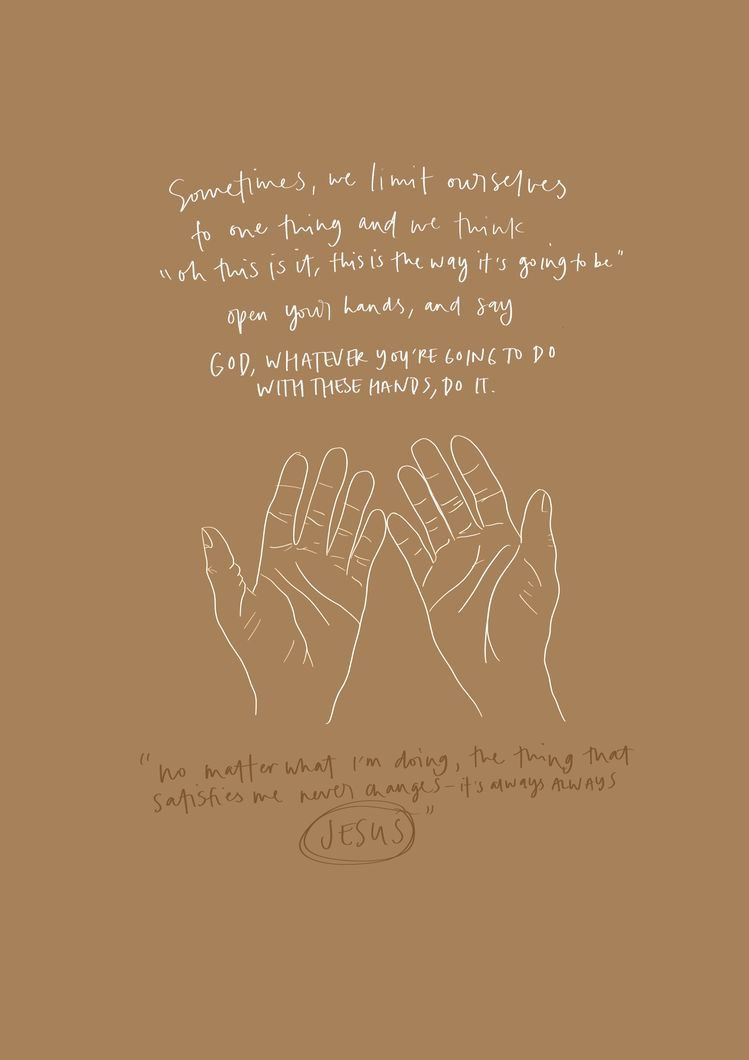 Sometimes, we limit ourselves
to one thing and we think
"oh this is it, this is the way it's going to be"
open your hands, and say
GOD, WHATEVER YOU'RE GOING TO DO
WITH THESE HANDS, DO IT.
"no matter what I'm doing, the thing that
satisfies me never changes - it's always ALWAYS
JESUS"